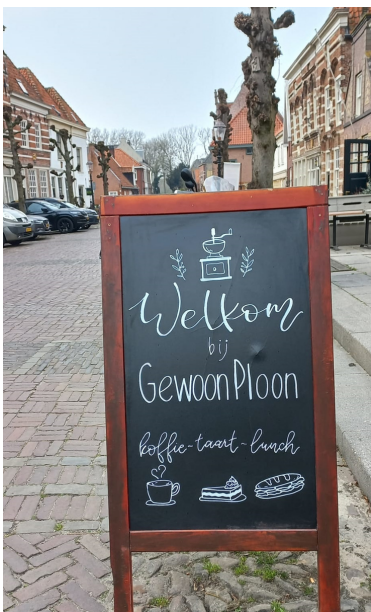 Welkom
bij
GewoonPloon
koffie-taart-lunch